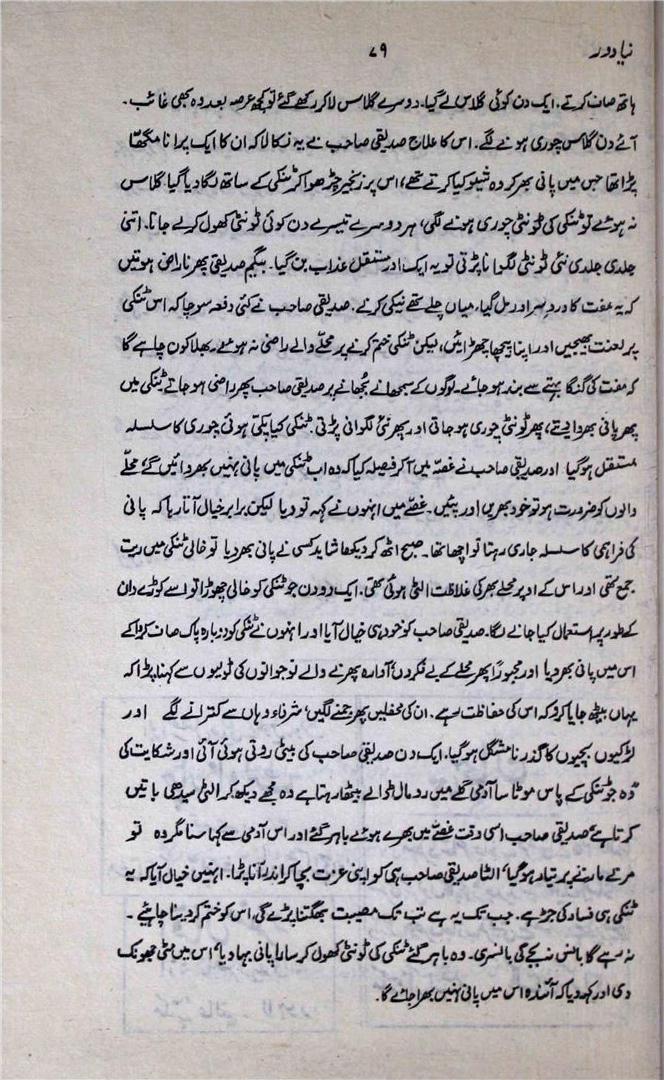 نیا دور ۷۹
ہاتھ صاف کرتے۔ ایک دن کوئی گلاس لے گیا۔ دوسرے گلاس لا کر رکھے گئے تو کچھ عرصہ بعد وہ بھی غائب۔
آئے دن گلاس چوری ہونے لگے۔ اس کا علاج صدیقی صاحب نے یہ نکالا کہ ان کا ایک پرانا مگ تھا
پڑا تھا جس میں پانی بھر کر وہ شیو کیا کرتے تھے، اس پر زنجیر چڑھوا کر ٹنکی کے ساتھ لگا دیا گیا گلاس
نہ ہوئے تو ٹنکی کی ٹونٹی چوری ہونے لگی، ہر دوسرے تیسرے دن کوئی ٹونٹی کھول کر لے جاتا۔ اتنی
جلدی جلدی نئی ٹونٹی لگوانا پڑتی تو یہ ایک اور مستقل عذاب بن گیا۔ بیگم صدیقی پھر ناراض ہوتیں
کہ یہ مفت کا درد سر اور مل گیا، میاں چلے تھے نیکی کرنے۔ صدیقی صاحب نے کئی دفعہ سوچا کہ اس ٹنکی
پر لعنت بھیجیں اور اپنا پیچھا چھڑائیں، لیکن ٹنکی ختم کرنے پر محلے والے راضی نہ ہوئے۔ بھلا کون چاہے گا
کہ مفت کی گنگا بہتے سے بند ہو جائے۔ لوگوں کے سمجھانے بجھانے پر صدیقی صاحب پھر راضی ہو جاتے ٹنکی میں
پھر پانی بھروا دیتے، پھر ٹونٹی چوری ہو جاتی اور پھر نئی لگوانی پڑتی ٹنکی کیا پکی ہوئی چوری کا سلسلہ
مستقل ہو گیا اور صدیقی صاحب نے غصہ میں آ کر فیصلہ کیا کہ وہ اب ٹنکی میں پانی نہیں بھروائیں گے، محلے
والوں کو ضرورت ہو تو خود بھریں اور پیئیں۔ غصے میں انہوں نے کہہ تو دیا لیکن برابر خیال آتا رہا کہ پانی
کی فراہمی کا سلسلہ جاری رہتا تو اچھا تھا۔ صبح اٹھ کر دیکھا شاید کسی نے پانی بھر دیا تو خالی ٹنکی میں ریت
جمع تھی اور اس کے اوپر محلے بھر کی غلاظت الٹی ہوئی تھی۔ ایک دو دن جو ٹنکی کو خالی چھوڑا تو اسے کوڑے دان
کے طور پر استعمال کیا جانے لگا۔ صدیقی صاحب کو خود ہی خیال آیا اور انہوں نے ٹنکی کو دوبارہ پاک صاف کرا کے
اس میں پانی بھر دیا اور مجبوراً پھر محلے کے بے فکروں، آوارہ پھرنے والے نوجوانوں کی ٹولیوں سے کہنا پڑا کہ
یہاں بیٹھ جایا کرو کہ اس کی حفاظت رہے۔ ان کی محفلیں پھر جمنے لگیں، شرفاء وہاں سے کترانے لگے اور
لڑکیوں بچیوں کا گذرنا مشکل ہو گیا۔ ایک دن صدیقی صاحب کی بیٹی روتی ہوئی آئی اور شکایت کی
"وہ جو ٹنکی کے پاس موٹا سا آدمی گلے میں رومال ڈالے بیٹھا رہتا ہے وہ مجھے دیکھ کر الٹی سیدھی باتیں
کرتا ہے" صدیقی صاحب اسی وقت غصے میں بھرے ہوئے باہر گئے اور اس آدمی سے کہا سنا مگر وہ تو
مرنے مارنے پر تیار ہو گیا، الٹا صدیقی صاحب ہی کو اپنی عزت بچا کر اندر آنا پڑا۔ انہیں خیال آیا کہ یہ
ٹنکی ہی فساد کی جڑ ہے۔ جب تک یہ ہے تب تک مصیبت بھگتنا پڑے گی، اس کو ختم کر دینا چاہئیے۔
نہ رہے گا بانس نہ بجے گی بانسری۔ وہ باہر گئے ٹنکی کی ٹونٹی کھول کر سارا پانی بہا دیا، اس میں مٹی جھونک
دی اور کہہ دیا کہ آئندہ اس میں پانی نہیں بھرا جائے گا۔